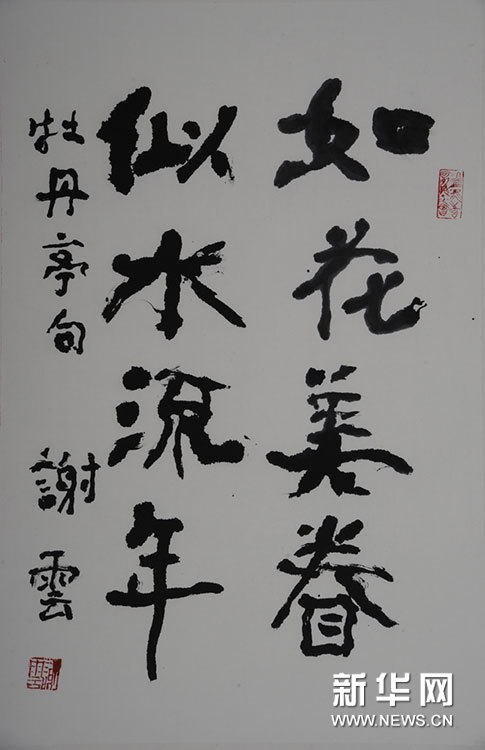 如花美眷
似水流年
牡丹亭句 謝雲
新华网
WWW.NEWS.CN